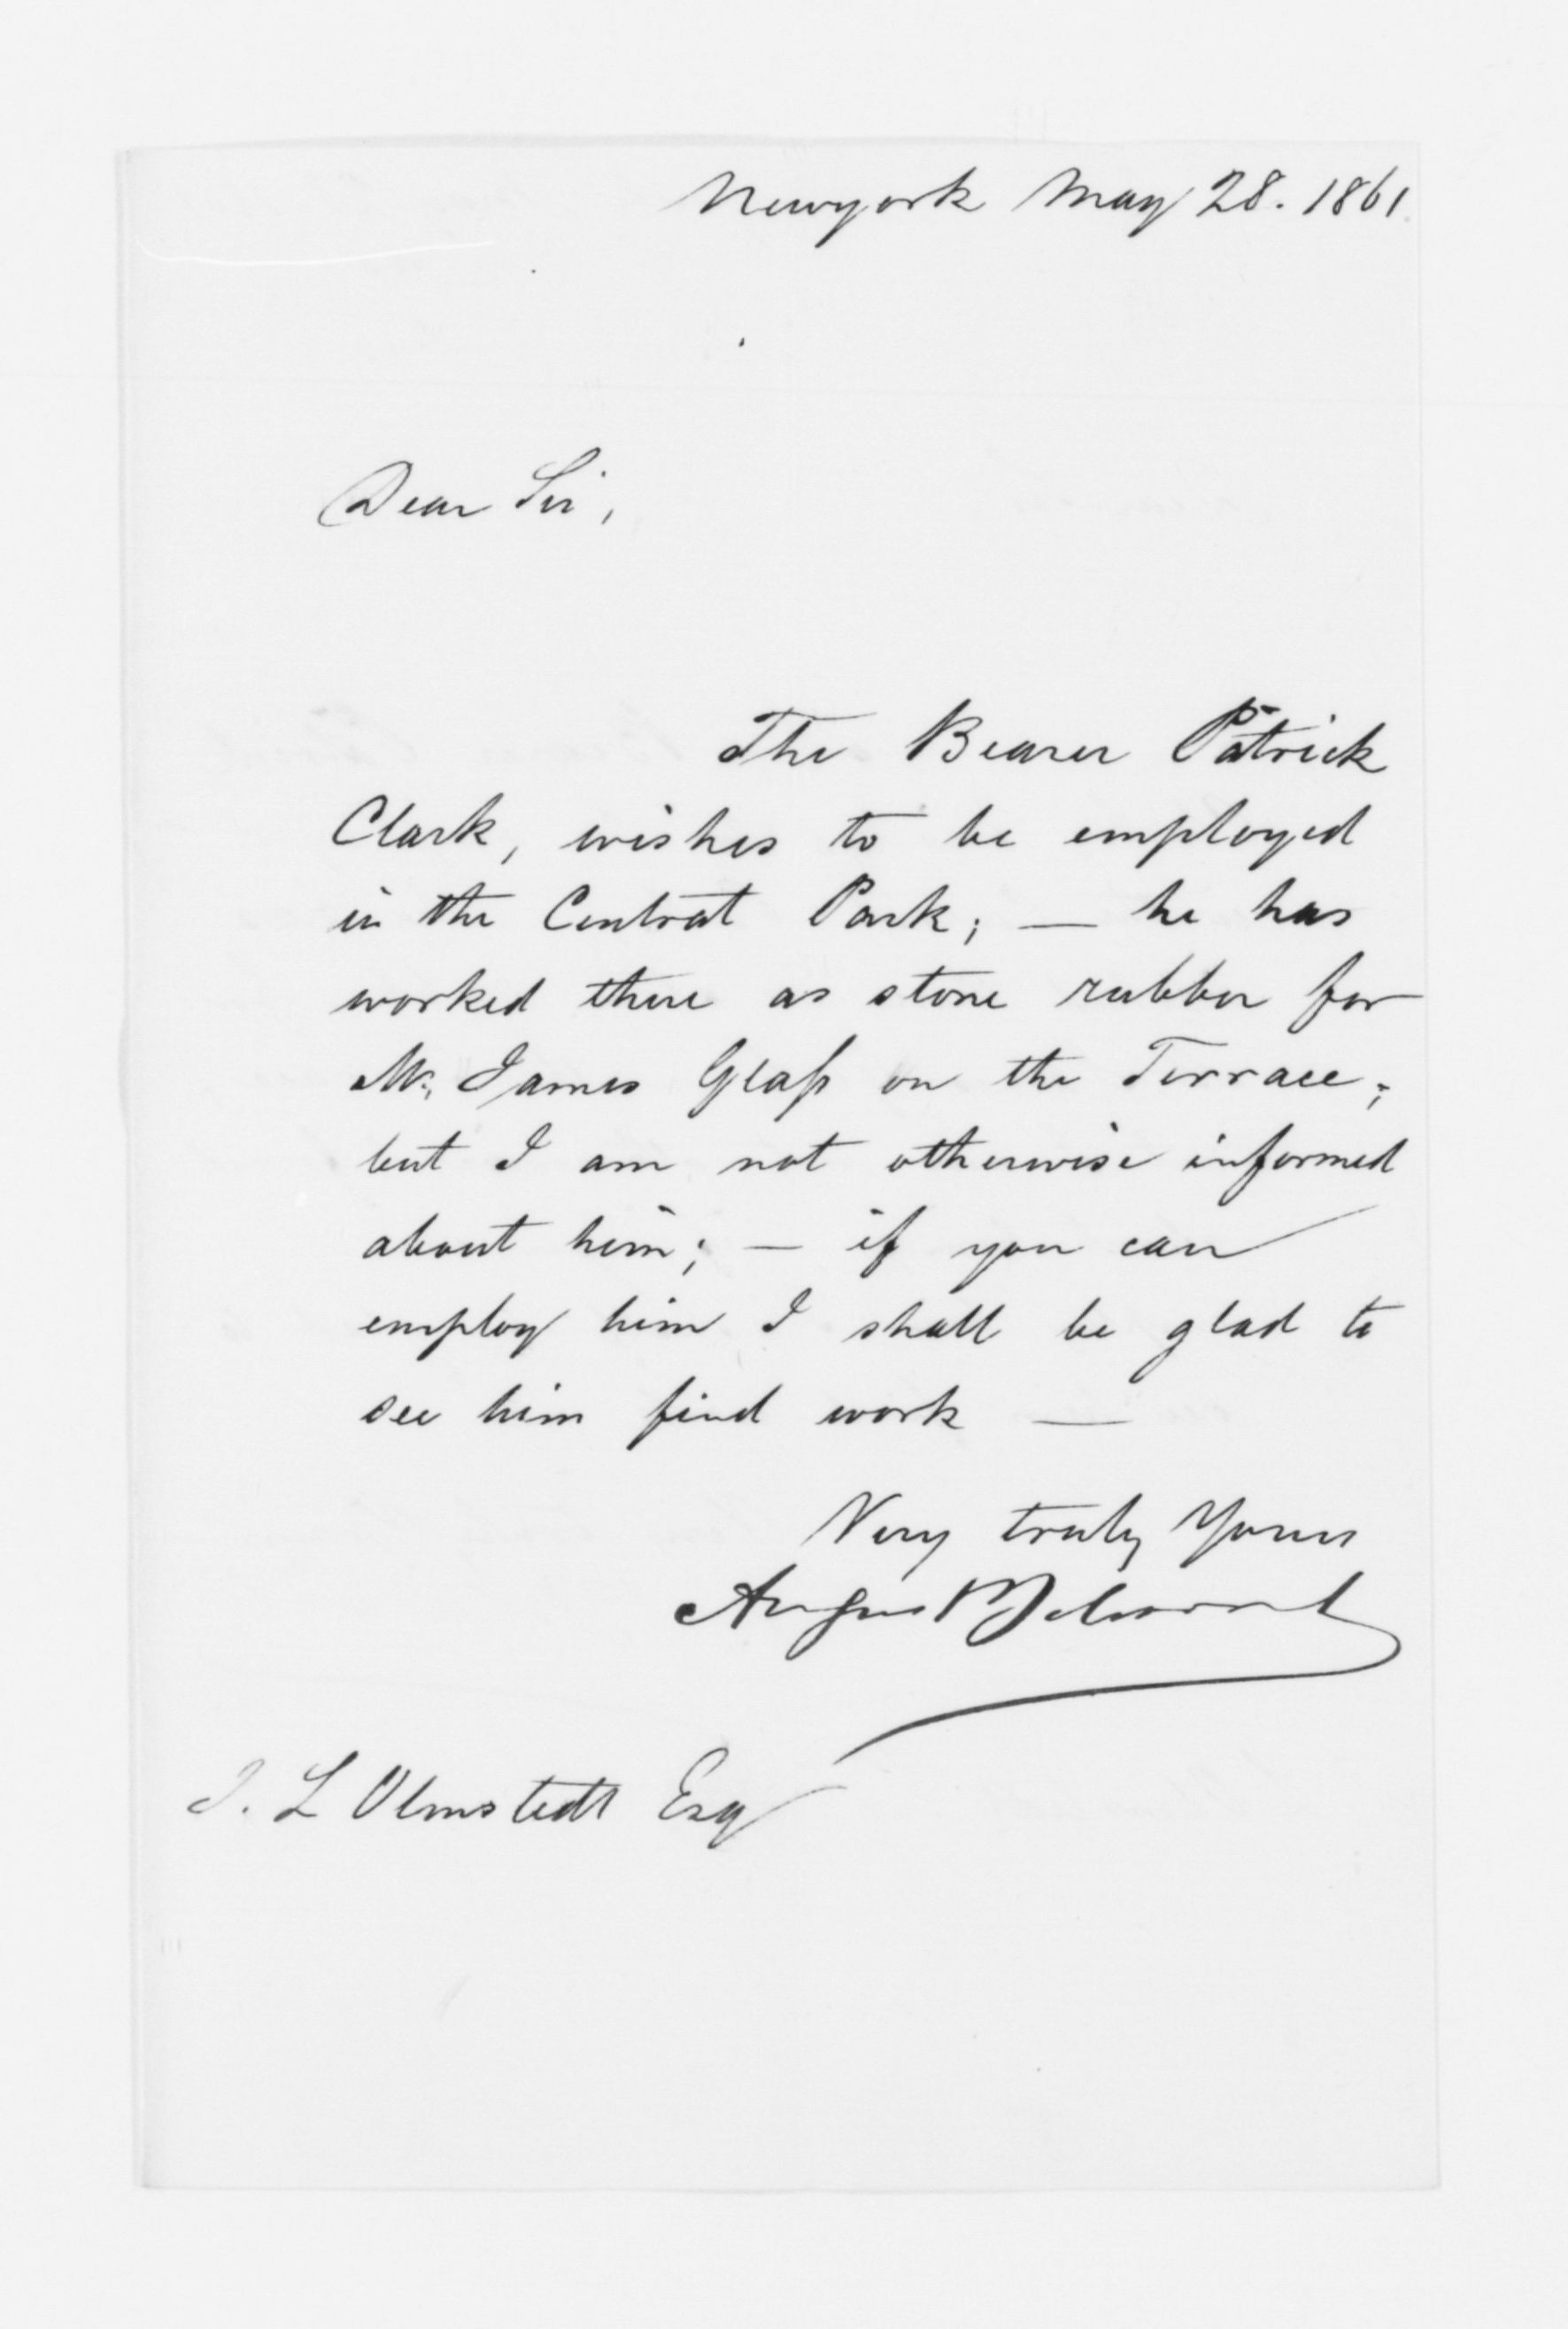 Newyork May 28. 1861.
Dear Sir,
The Bearer Patrick
Clark, wishes to be employed
in the Central Park; — he has
worked there as stone rubber for
Mr. James Glass on the Terrace;
but I am not otherwise informed
about him; — if you can
employ him I shall be glad to
see him find work —
Very truly Yours
August Belmont
F. L Olmstedt Esq